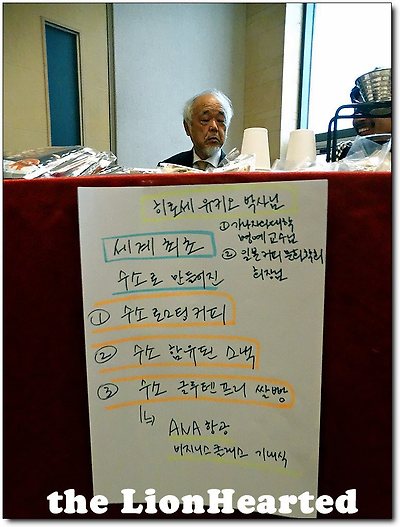 히로세 유키오 박사님
① 가나자와대학
명예교수님
② 일본커피문화학회
회장님
세계 최초
수소로 만들어진
① 수소 로스팅 커피
② 수소 함유된 스낵
③ 수소 글루텐프리 쌀빵
↳ ANA 항공
비지니스클래스 기내식
the LionHearted